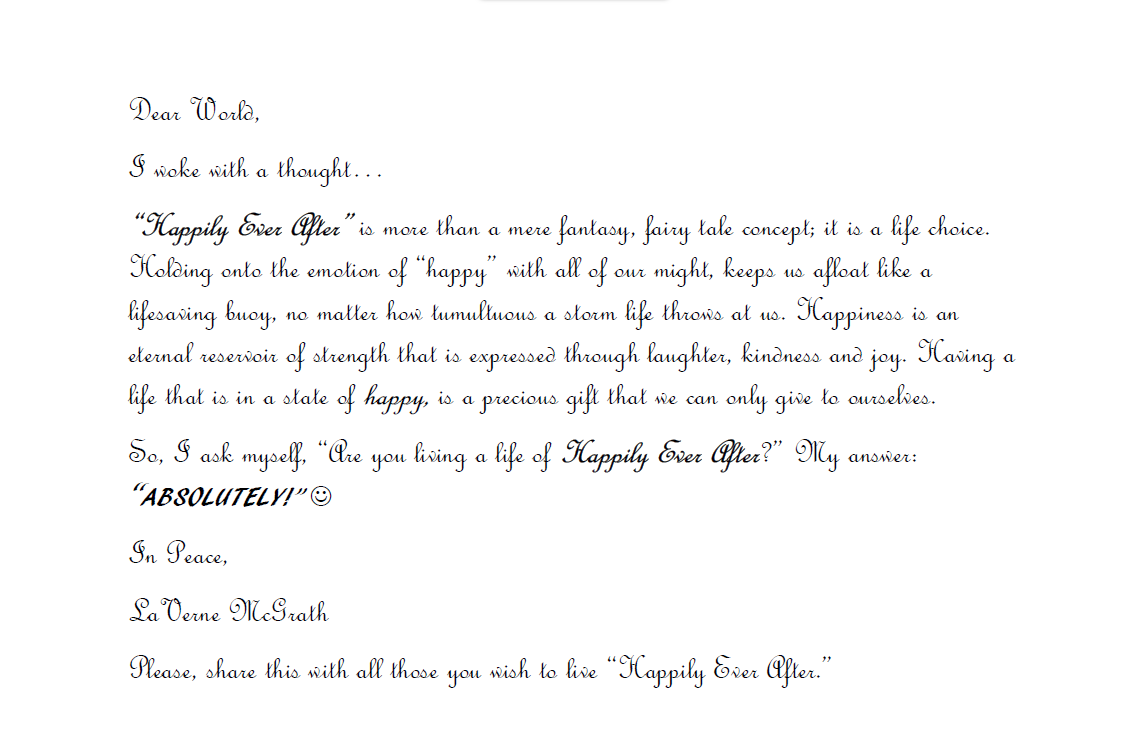 Dear World,
I woke with a thought…
“Happily Ever After” is more than a mere fantasy, fairy tale concept; it is a life choice.
Holding onto the emotion of “happy” with all of our might, keeps us afloat like a
lifesaving buoy, no matter how tumultuous a storm life throws at us. Happiness is an
eternal reservoir of strength that is expressed through laughter, kindness and joy. Having a
life that is in a state of happy, is a precious gift that we can only give to ourselves.
So, I ask myself, “Are you living a life of Happily Ever After?” My answer:
“ABSOLUTELY!” ☺
In Peace,
LaVerne McGrath
Please, share this with all those you wish to live “Happily Ever After.”